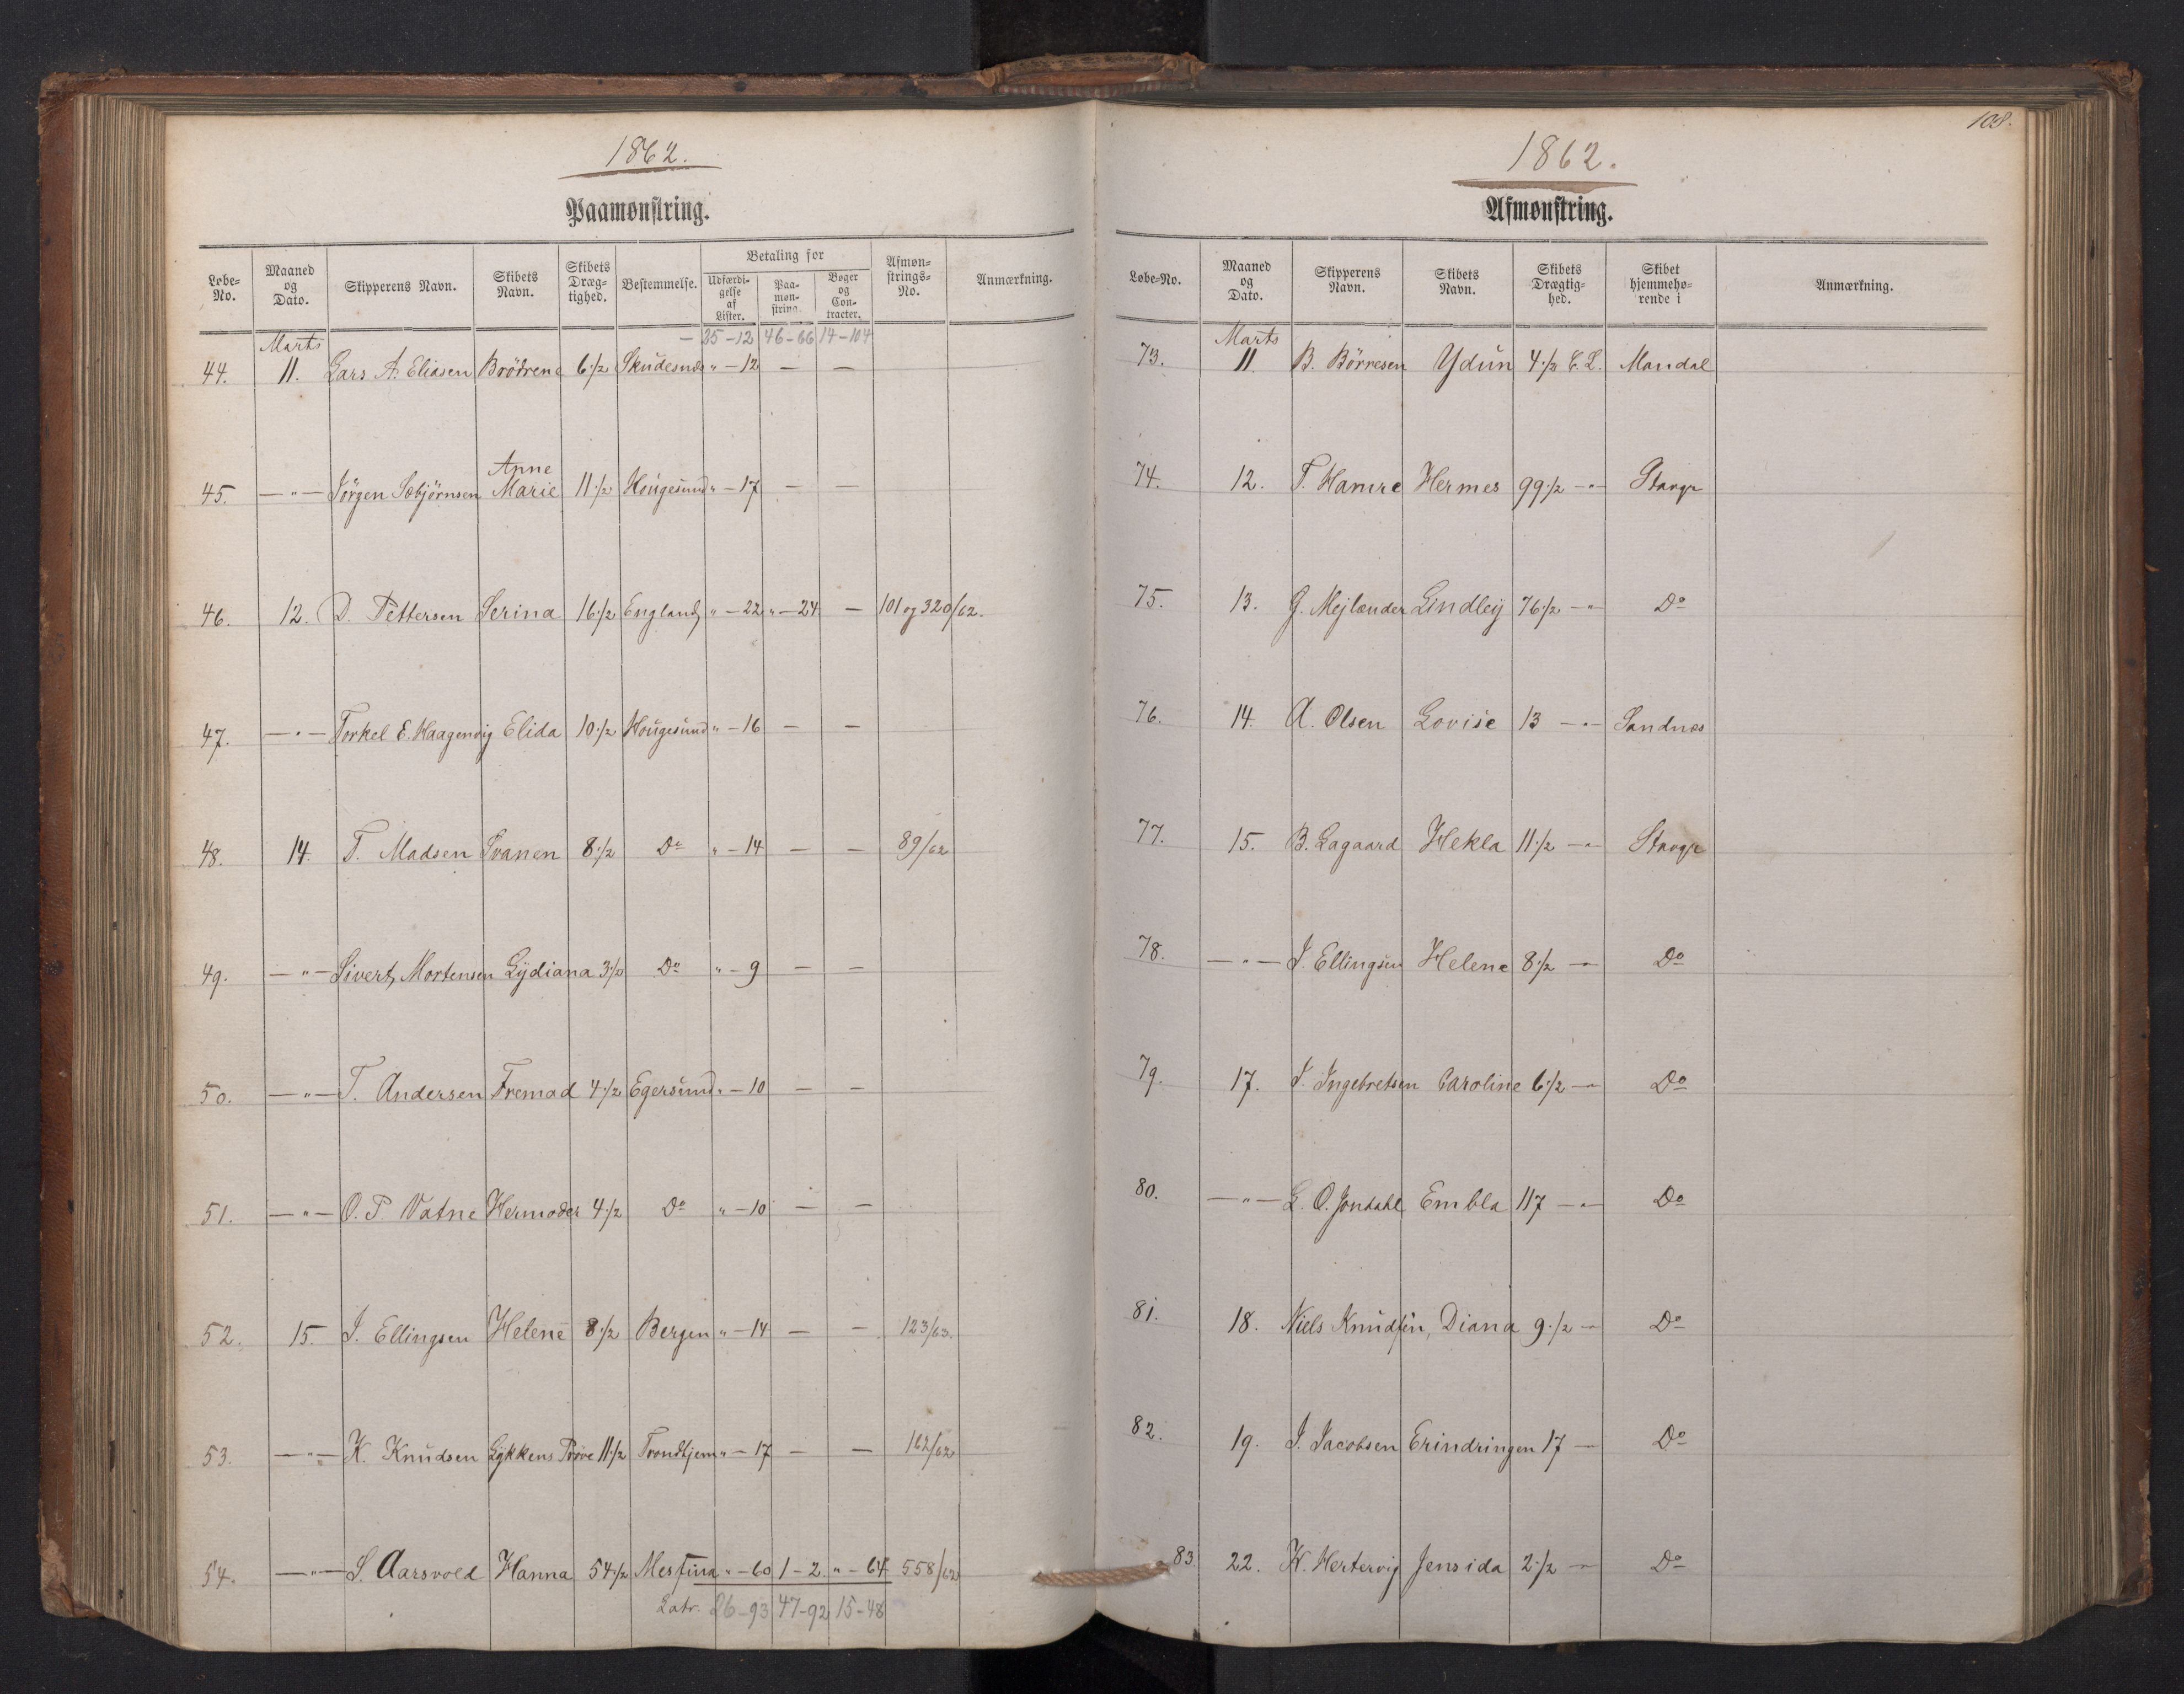 1862.
Paamønstring.
Løbe-No. Maaned og Dato. Skipperens Navn. Skibets Navn. Skibets Dræg-tighed. Bestemmelse. Betaling for Udfærdi-gelse af Lister. Paa-møn-string. Bøger og Con-tracter. Afmøn-strings-No. Anmærkning.
— 25-12 46-66 14-104
Marts
44. 11. Lars A. Eliasen Brödrene 6 1/2 Skudesnæs " - 12 — —
45. —"— Jörgen Sebjörnsen Anne Marie 11 1/2 Hougesund " - 17 — —
46. 12. D. Pettersen Serina 16 1/2 England " - 22 " - 24 — 101 og 320/62.
47. —"— Torkel E. Haagenvig Elida 10 1/2 Hougesund " - 16 — —
48. 14. T. Madsen Svanen 8 1/2 Do " - 14 — — 89/62
49. —"— Sivert Mortensen Lydiana 3 1/2 Do " - 9 — —
50. —"— T. Andersen Fremad 4 1/2 Egersund " - 10 — —
51. —"— O. P. Vatne Hermoder 4 1/2 Do " - 10 — —
52. 15. J. Ellingsen Helene 8 1/2 Bergen " - 14 — — 123/63.
53. —"— K. Knudsen Lykkens Pröve 11 1/2 Trondhjem " - 17 — — 162/62
54. —"— S. Aarsvold Hanna 54 1/2 Messina " - 60 1 - 2 " - 64 558/62
Latr. 26-93 47-92 15-48
108.
1862.
Afmønstring.
Løbe-No. Maaned og Dato. Skipperens Navn. Skibets Navn. Skibets Drægtig-hed. Skibet hjemmehø-rende i Anmærkning.
Marts
73. 11. B. Börresen Ydun 4 1/2 C. L. Mandal
74. 12. T. Hamre Hermes 99 1/2 —"— Stavgr
75. 13. G. Mejlænder Lindley 76 1/2 —"— Do
76. 14. A. Olsen Lovise 13 —"— Sandnæs
77. 15. B. Lagaard Hekla 11 1/2 —"— Stavgr
78. —"— J. Ellingsen Helene 8 1/2 —"— Do
79. 17. J. Ingebretsen Caroline 6 1/2 —"— Do
80. —"— L. O. Jondahl Embla 117 —"— Do
81. 18. Niels Knudsen, Diana 9 1/2 —"— Do
82. 19. J. Jacobsen Erindringen 17 — Do
83. 22. K. Hertervig Jensida 2 1/2 —"— Do